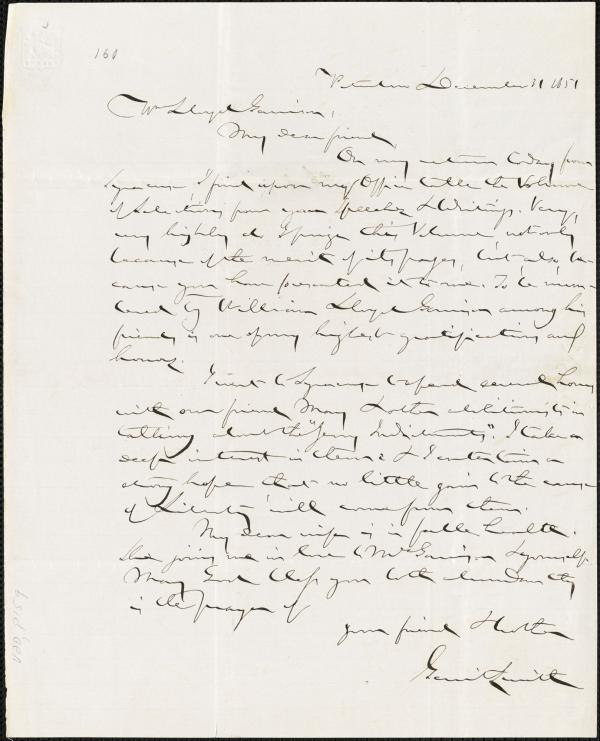 161
Peterboro December 31 1851
Wm Lloyd Garrison,
My dear friend,
On my return today from
Syracuse, I find upon my Office table the Volume
of Selections from your Speeches & Writings. Very,
very highly do I prize this Volume, not only
because of the merit of its pages, but also be-
cause you have presented it to me. To be num-
bered by William Lloyd Garrison among his
friends is one of my highest gratifications and
honors.
I went to Syracuse to spend several hours
with our friend May & other abolitionists in
talking about the "Jerry Indictments". I take a
deep interest in them: & I entertain a
strong hope that no little gain to the cause
of Liberty will come from them.
My dear wife is in feeble health.
She joins me in love to Mrs Garrison & yourself.
May God bless you both abundantly
is the prayer of
your friend & brother
Gerrit Smith